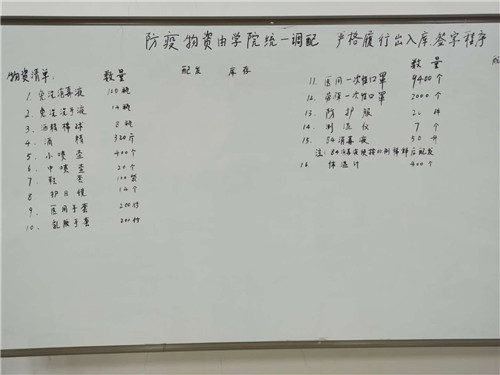 防疫物资由学院统一调配 严格履行出入库签字程序
物资清单: 数量 配发 库存
1. 免洗消毒液 100瓶
2. 免洗洗手液
3. 酒精棉球 8瓶
4. 酒精
5. 小喷壶 400个
6. 中喷壶 20个
7. 鞋套 100双
8. 护目镜
9. 医用手套 200付
10. 乳胶手套 200付
数量
11. 医用一次性口罩 9400个
12. 普通一次性口罩 2000个
13. 防护服 20件
14. 测温仪 7个
15. 84消毒液 50斤
注: 84消毒液按比例稀释后配发
16. 体温计 400个